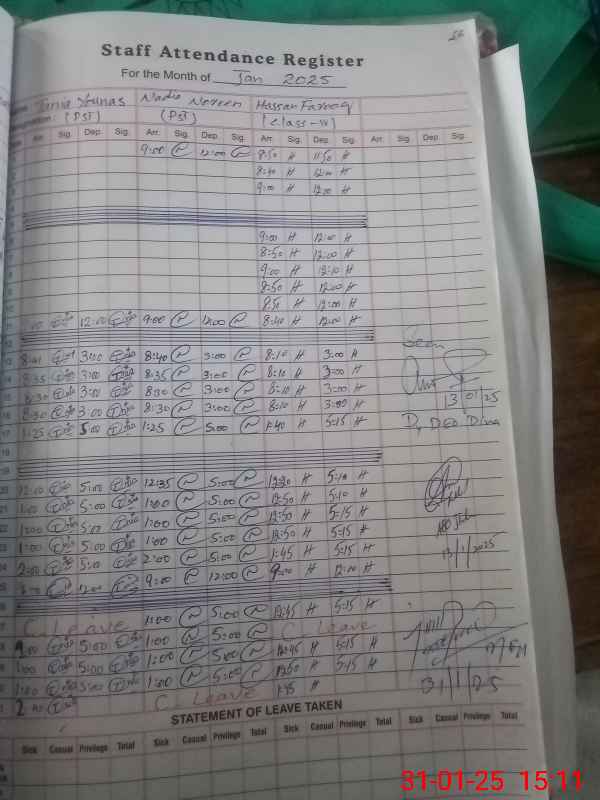 Staff Attendance Register
For the Month of Jan 2025
Tania Younas Nadia Noreen Hassan Farooq
(PST) (PST) (Class-IV)
Arr. Sig. Dep. Sig. Arr. Sig. Dep. Sig. Arr. Sig. Dep. Sig. Arr. Sig. Dep. Sig.
9:00 12:00 8:50 H 11:50 H
8:40 H 12:00 H
9:00 H 12:00 H
9:00 H 12:00 H
8:50 H 12:00 H
9:00 H 12:10 H
8:50 H 12:00 H
8:50 H 12:00 H
12:00 9:00 12:00 8:40 H 12:00 H
Seen
8:41 3:00 8:40 3:00 8:10 H 3:00 H
8:35 3:00 8:35 3:00 8:10 H 3:00 H
8:30 3:00 8:30 3:00 8:10 H 3:00 H 13/01/25
8:30 3:00 8:30 3:00 8:10 H 3:00 H
1:25 5:00 1:25 5:00 1:40 H 5:15 H Dy DEO
5:00 12:35 5:00 12:30 H 5:10 H
5:00 1:00 5:00 12:50 H 5:10 H
1:00 5:00 1:00 5:00 12:50 H 5:15 H
1:00 5:00 1:00 5:00 12:50 H 5:15 H
2:00 5:00 2:00 5:00 1:45 H 5:15 H
12:00 9:00 12:00 9:00 H 12:00 H
C. Leave 1:00 5:00 12:45 H 5:15 H
5:00 1:00 5:00 C. Leave
1:00 5:00 1:00 5:00 12:45 H 5:15 H
1:00 5:00 1:00 5:00 12:50 H 5:15 H
C. Leave 1:45 H
31/1/25
STATEMENT OF LEAVE TAKEN
Sick Casual Privilege Total Sick Casual Privilege Total Sick Casual Privilege Total Sick Casual Privilege Total
31-01-25 15:11